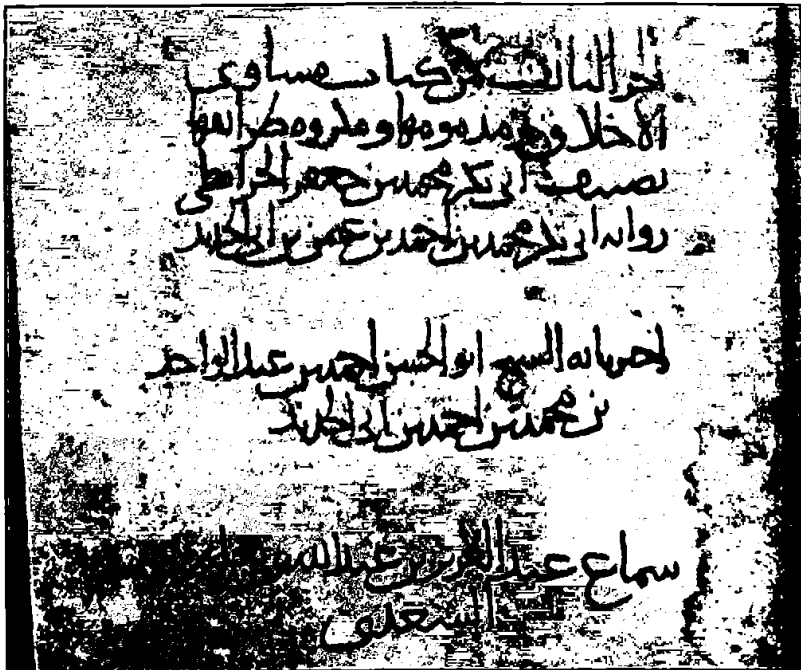 الجزء الثالث من كتاب مساوئ
الأخلاق ومذمومها ومكروه طرائقها
تصنيف أبي بكر محمد بن جعفر الخرائطي
رواية أبي بكر محمد بن أحمد بن عثمن بن أبي الحديد
أخبرنا به الشيخ أبو الحسن أحمد بن عبد الواحد
بن محمد بن أحمد بن أبي الحديد
سماع عبد العزيز بن عبد الله